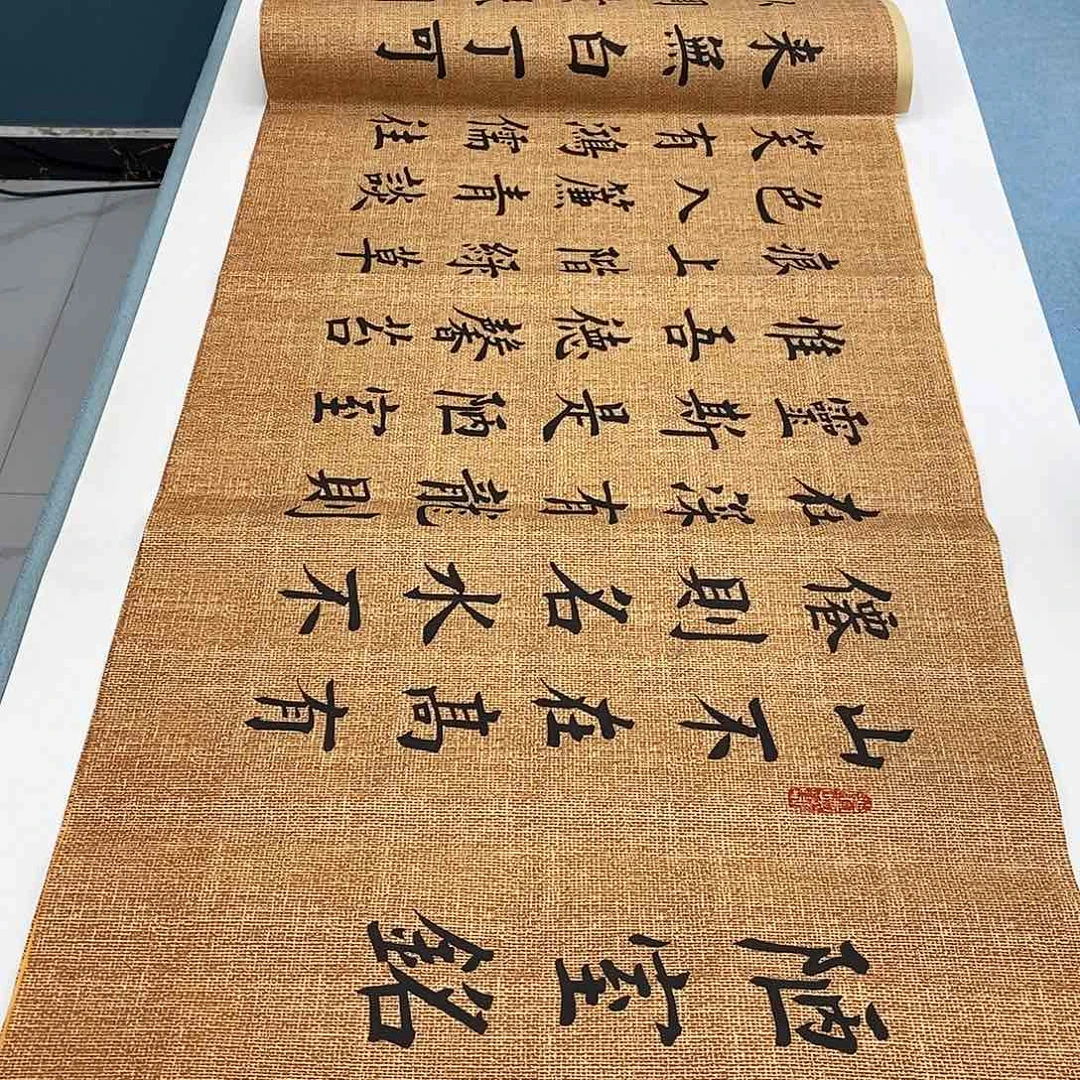 陋室銘
山不在高有
僊則名水不
在深有龍則
靈斯是陋室
惟吾德馨苔
痕上階綠草
色入簾青談
笑有鴻儒往
來無白丁可